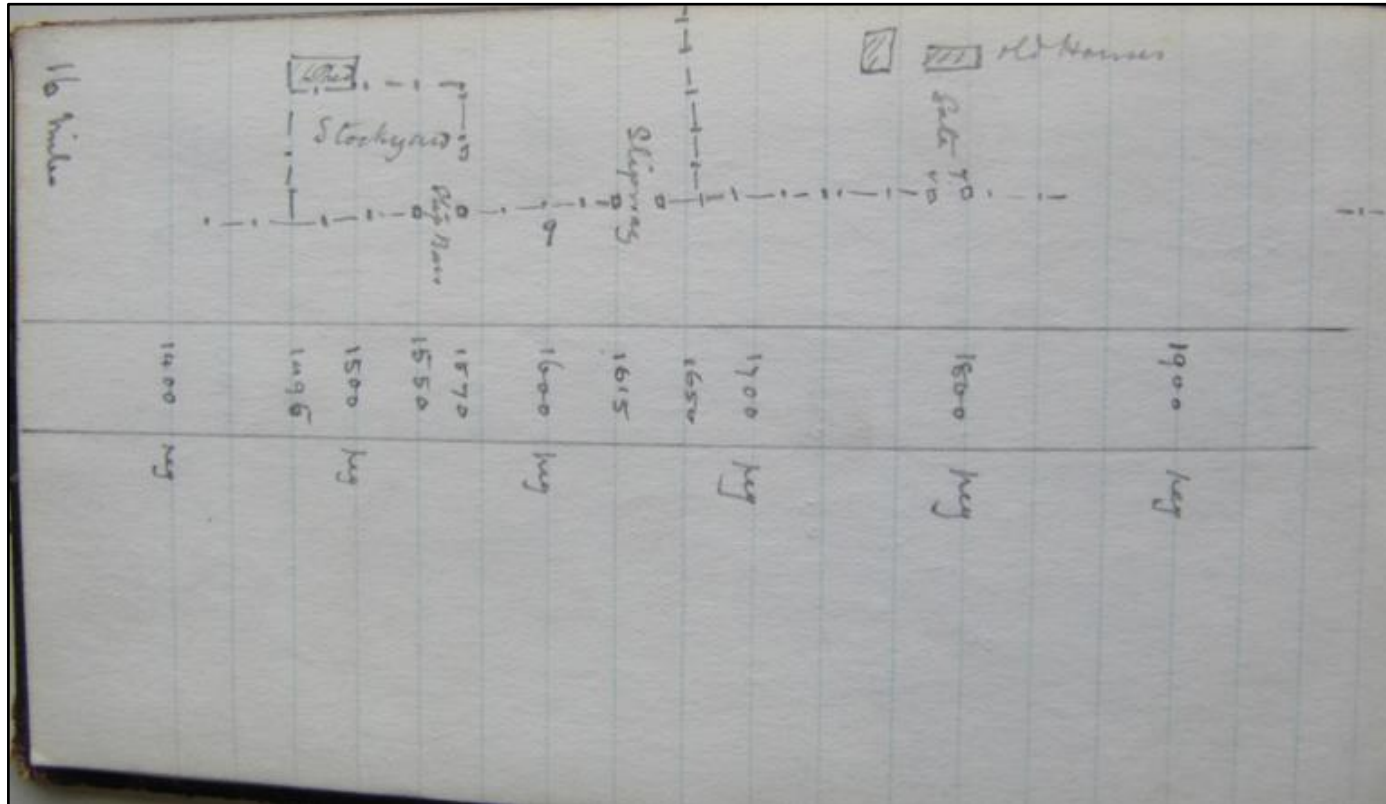 16 Miles
Shed
Stockyard
Slip Rails
Sliprails
Gate
old Houses
1400 peg
1496
1500 peg
1550
1570
1600 peg
1615
1650
1700 peg
1800 peg
1900 peg